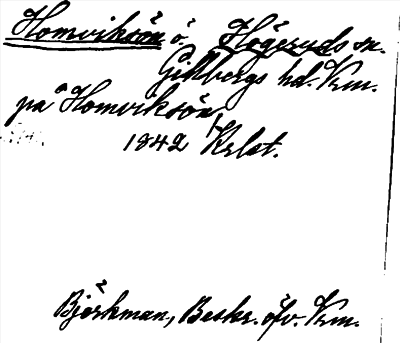 Homviksön ö. Högeruds sn.
Gillbergs hd. Vrm.
på Homviksön
1842 Krlbt.
Björkman, Beskr. öfv. Vrm.